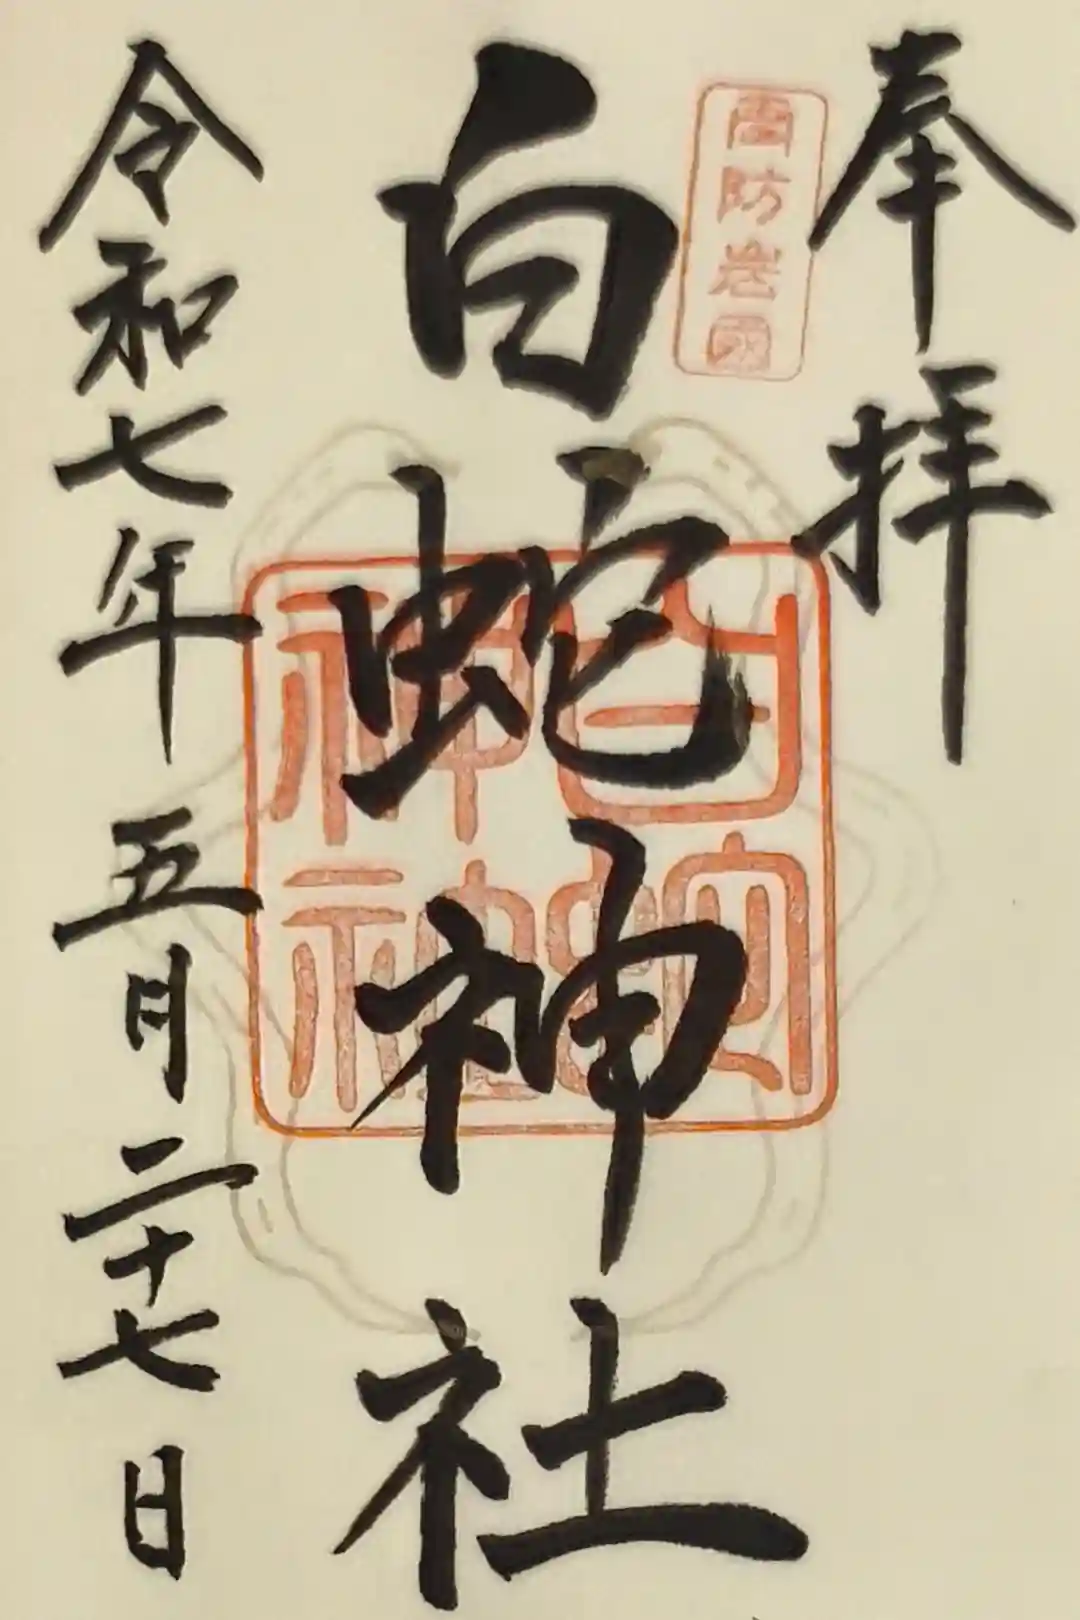 奉拝
周防岩国
白蛇神社
白蛇神社
令和七年五月二十七日